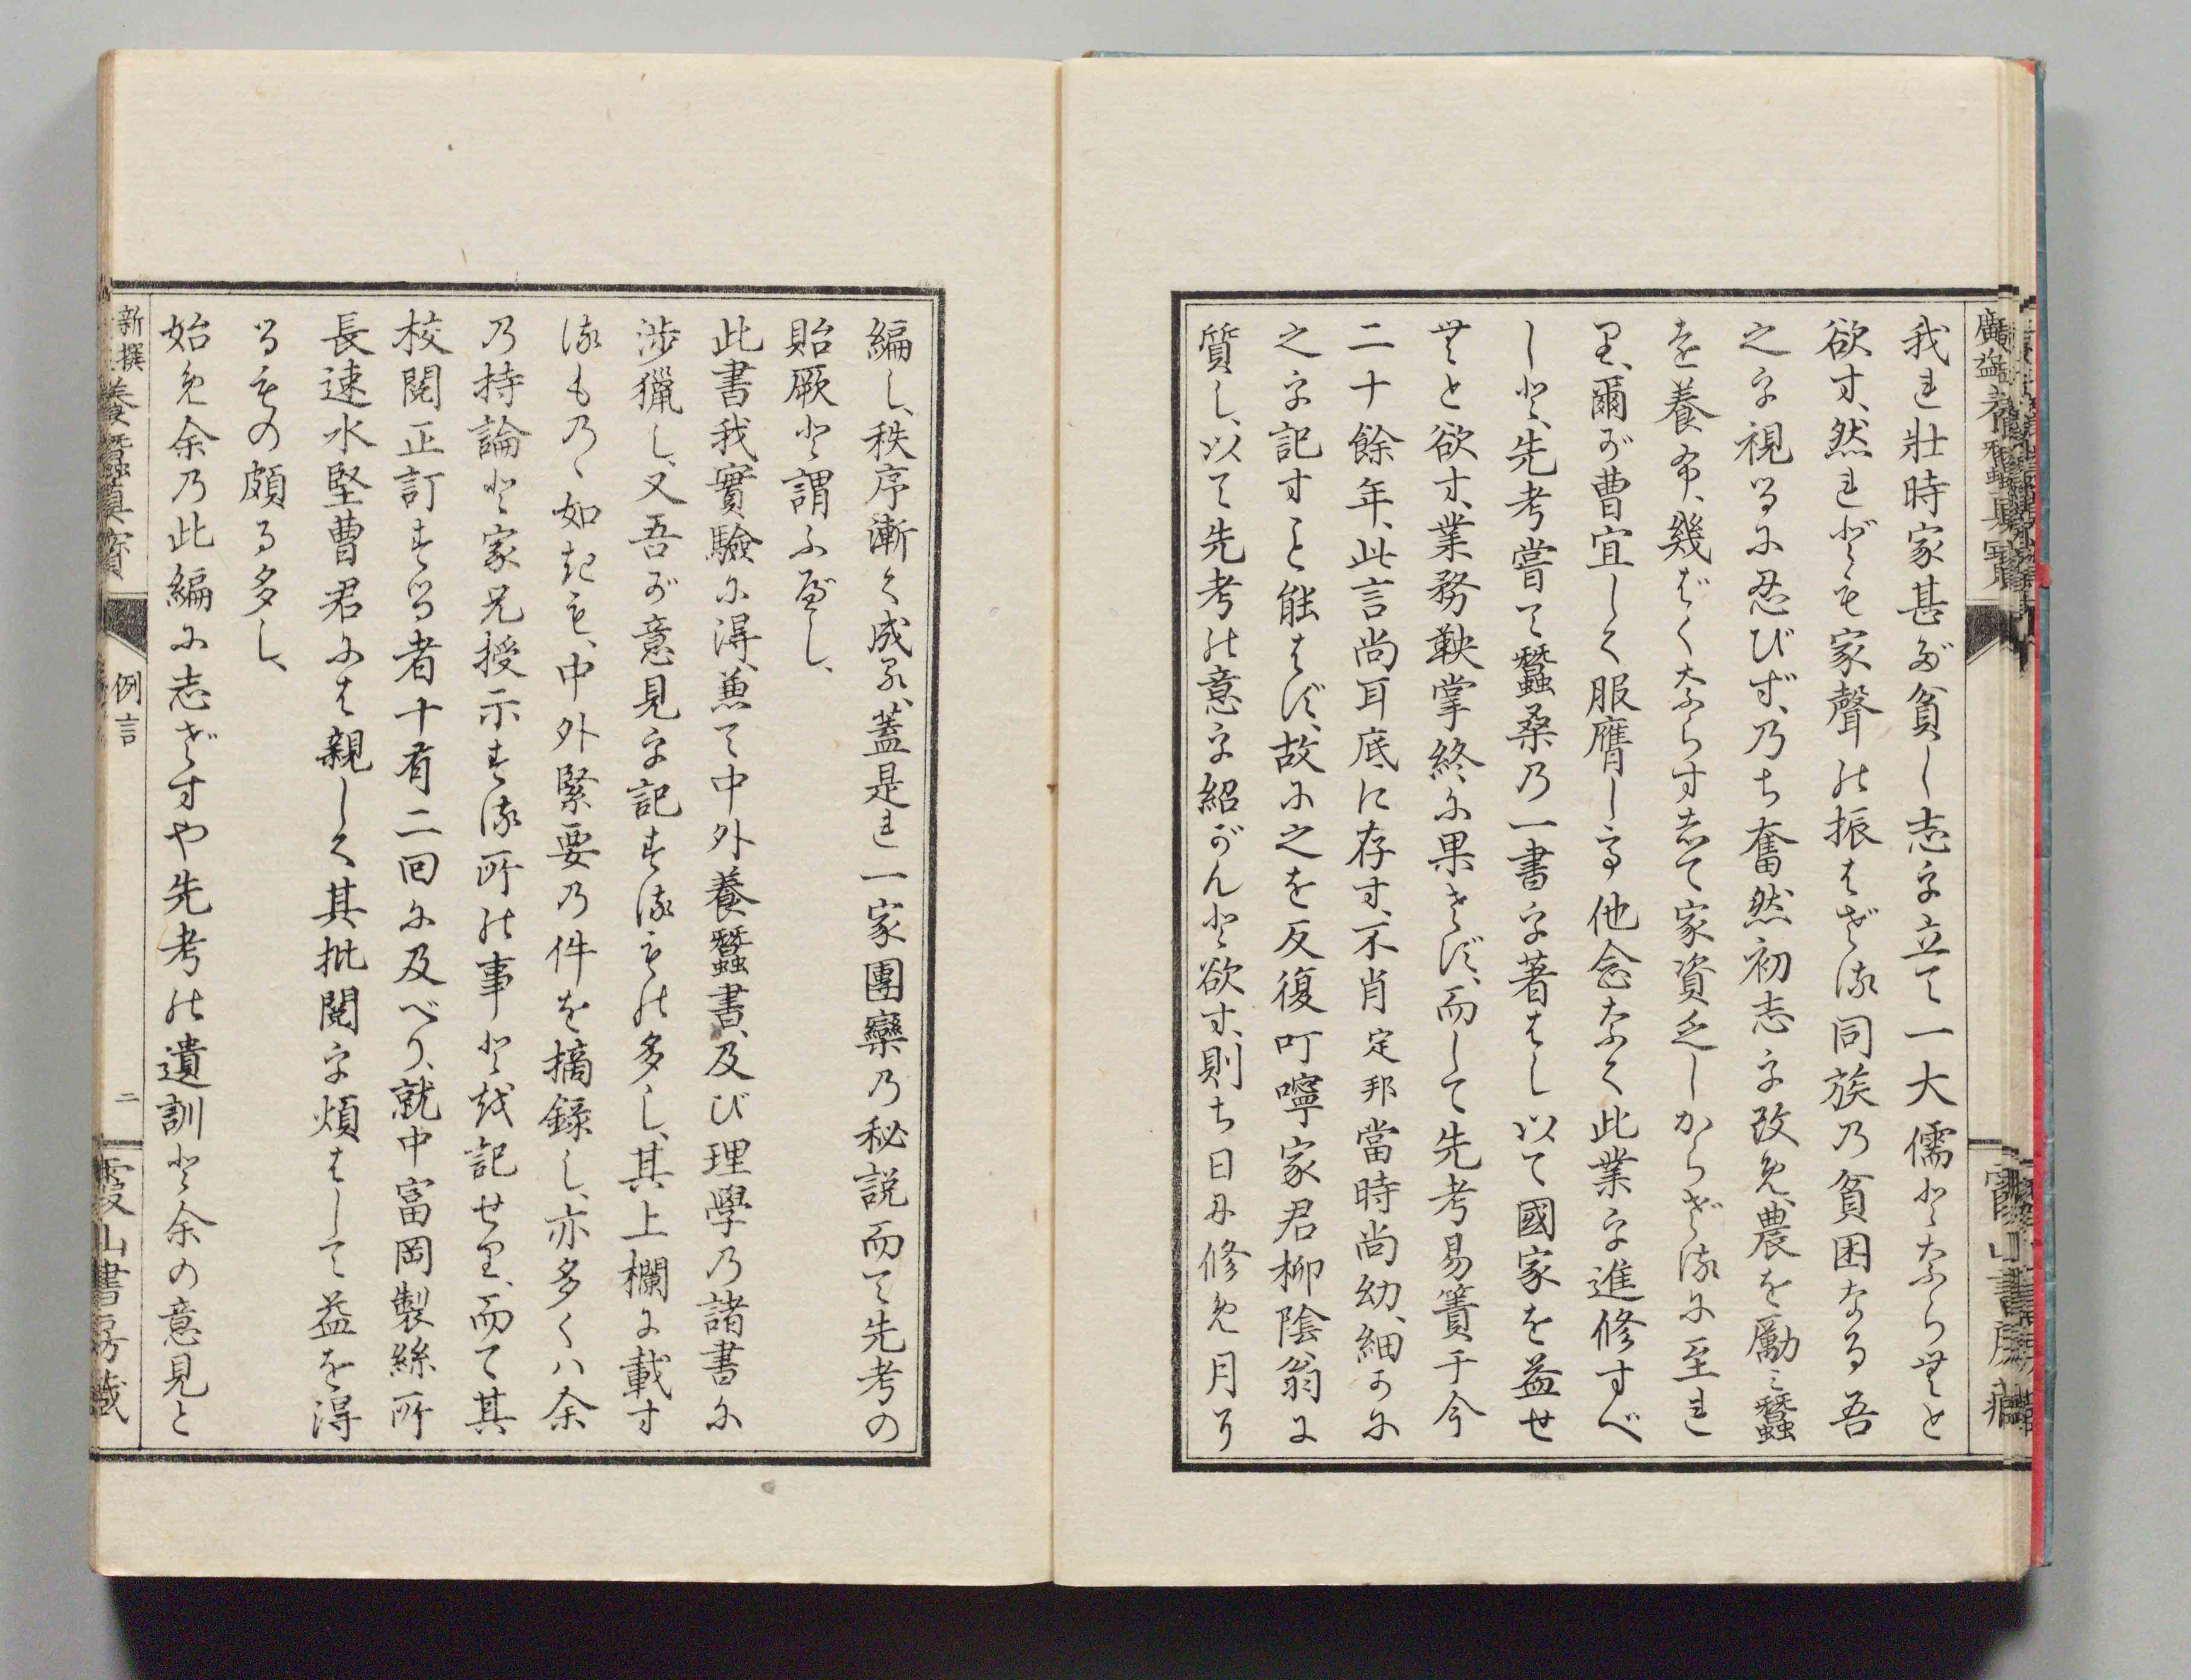 我れ壯時家甚だ貧し志を立て一大儒とならむと
欲す、然れども家聲の振はざる同族の貧困なる吾
之を視るに忍びず、乃ち奮然初志を改め、農を勵み蠶
を養ふ、幾ばくならずして家資乏しからざるに至れ
り、爾が曹宜しく服膺して他念なく此業を進修すべ
しと、先考嘗て蠶桑の一書を著はし以て國家を益せ
むと欲す、業務鞅掌終に果さず、而して先考易簀于今
二十餘年、此言尚耳底に存す、不肖定邦當時尚幼、細かに
之を記すこと能はず、故に之を反復叮嚀家君柳陰翁に
質し、以て先考の意を紹がんと欲す、則ち日に修め月に
編し、秩序漸く成る、蓋是れ一家團欒の秘説而て先考の
貽厥と謂ふべし、
此書我實驗に得、兼て中外養蠶書、及び理學の諸書に
渉獵し、又吾が意見を記するもの多し、其上欄に載す
るものゝ如きも、中外緊要の件を摘録し、亦多くハ余
の持論と家兄授示する所の事とを記せり、而て其
校閲正訂する者十有二回に及べり、就中富岡製絲所
長速水堅曹君には親しく其批閲を煩はして益を得
るもの頗る多し、
始め余の此編に志ざすや先考の遺訓と余の意見と
新撰養蠶真寶
例言
二
霞山書房藏